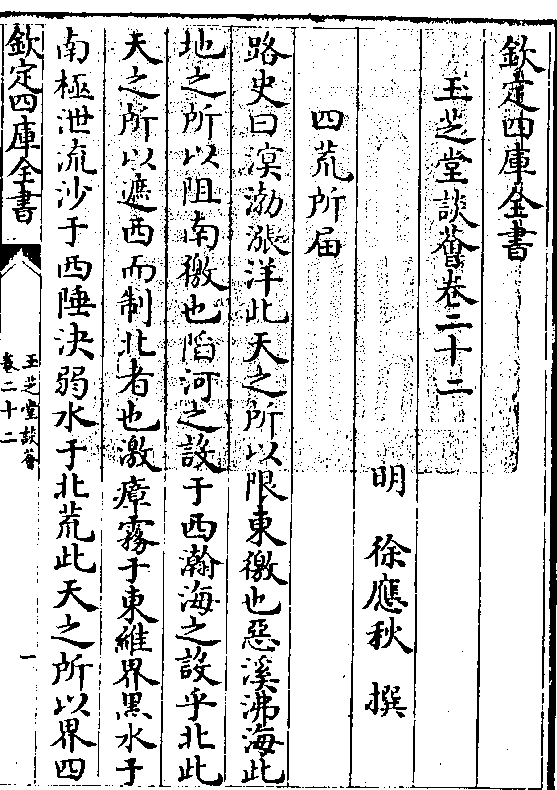 欽定四庫全書
玉芝堂談薈卷二十二
明 徐應秋 撰
四荒所届
路史曰溟渤漲洋此天之所以限東徼也惡溪沸海此
地之所以阻南徼也䧟河之設于西瀚海之設乎北此
天之所以遮西而制北者也激瘴霧于東維界黑水于
南極泄流沙于西陲決弱水于北荒此天之所以界四
欽定四庫全書
玉芝堂談薈
卷二十二
一